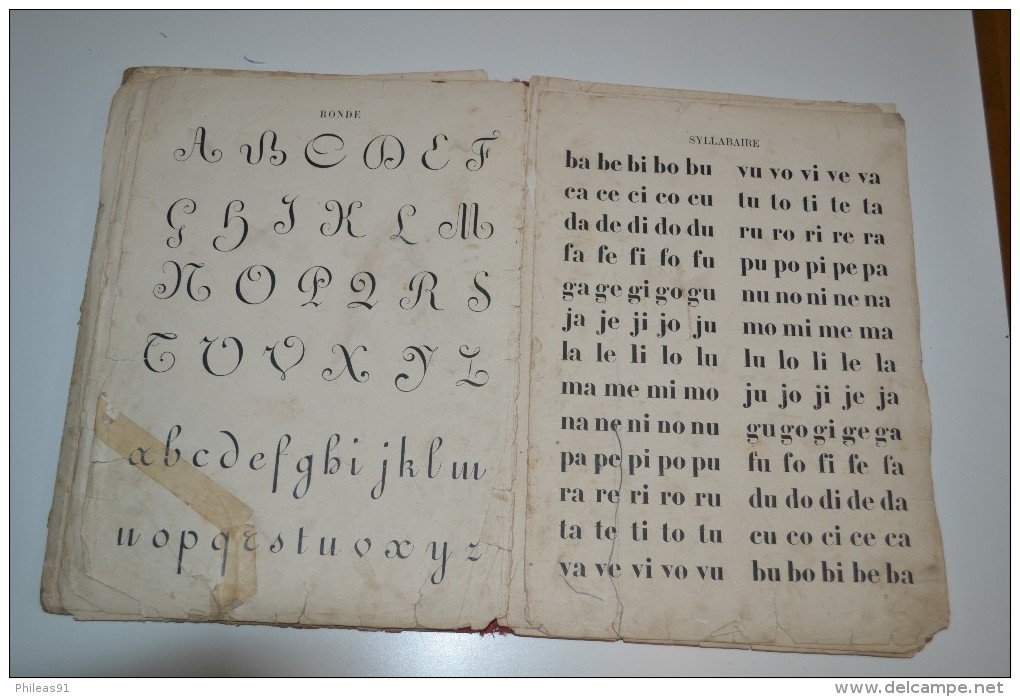 RONDE
A B C D E F
G H I K L M
N O P Q R S
T U V X Y Z
a b c d e f g h i j k l m
n o p q r s t u v x y z
SYLLABAIRE
ba be bi bo bu vu vo vi ve va
ca ce ci co cu tu to ti te ta
da de di do du ru ro ri re ra
fa fe fi fo fu pu po pi pe pa
ga ge gi go gu nu no ni ne na
ja je ji jo ju mo mi me ma
la le li lo lu lu lo li le la
ma me mi mo ju jo ji je ja
na ne ni no nu gu go gi ge ga
pa pe pi po pu fu fo fi fe fa
ra re ri ro ru du do di de da
ta te ti to tu cu co ci ce ca
va ve vi vo vu bu bo bi be ba
Phileas91
www.delcampe.net